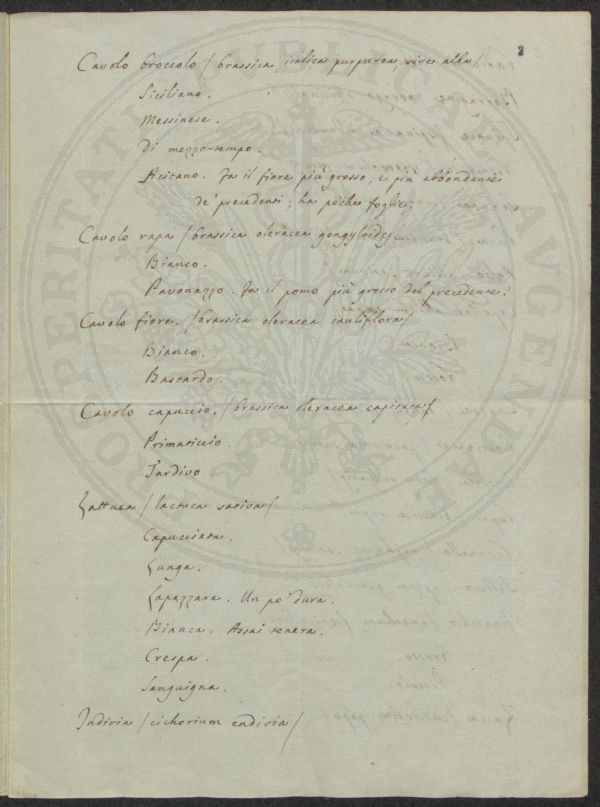 2
Cavolo broccolo / brassica italica purpurea, sive alba /
Siciliano.
Messinese.
Di mezzo-tempo.
Acitano. Fa il fiore più grosso, e più abbondante
de' precedenti; ha poche foglie.
Cavolo rapa / brassica oleracea gongyloides
Bianco.
Pavonazzo. Fa il pomo più grosso del precedente.
Cavolo fiore. / brassica oleracea cauliflora /
Bianco.
Bastardo.
Cavolo capuccio. / brassica oleracea capitata /
Primaticcio.
Tardivo
Lattuca / lactuca sativa /
Capucciata.
Lunga.
Lapazzara. Un po' dura.
Bianca. Assai tenera.
Crespa.
Sanguigna.
Indivia / cichorium endivia /
PROSPERITATI PUBLICAE AUGENDAE